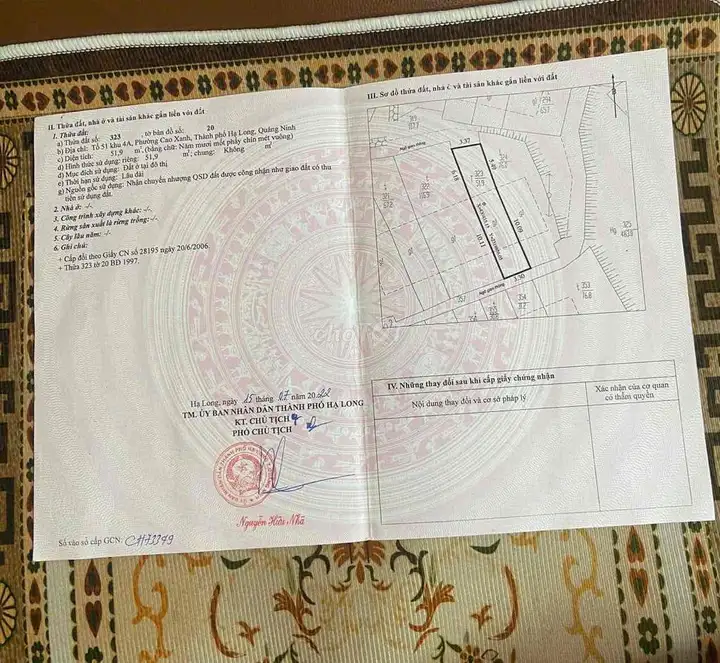 II. Thửa đất, nhà ở và tài sản khác gắn liền với đất
1. Thửa đất:
a) Thửa đất số: 323 , tờ bản đồ số: 20
b) Địa chỉ: Tổ 51 khu 4A, Phường Cao Xanh, Thành phố Hạ Long, Quảng Ninh
c) Diện tích: 51,9 m², (bằng chữ: Năm mươi mốt phẩy chín mét vuông)
d) Hình thức sử dụng: riêng: 51,9 m²; chung: Không m²
đ) Mục đích sử dụng: Đất ở tại đô thị
e) Thời hạn sử dụng: Lâu dài
g) Nguồn gốc sử dụng: Nhận chuyển nhượng QSD đất được công nhận như giao đất có thu
tiền sử dụng đất.
2. Nhà ở: -/-.
3. Công trình xây dựng khác: -/-.
4. Rừng sản xuất là rừng trồng:-/-.
5. Cây lâu năm: -/-.
6. Ghi chú:
+ Cấp đổi theo Giấy CN số 28195 ngày 20/6/2006.
+ Thửa 323 tờ 20 BĐ 1997.
Hạ Long, ngày 15 tháng 07 năm 2022
TM. ỦY BAN NHÂN DÂN THÀNH PHỐ HẠ LONG
KT. CHỦ TỊCH
PHÓ CHỦ TỊCH
Nguyễn Hữu Nhã
Số vào sổ cấp GCN: CH73349
III. Sơ đồ thửa đất, nhà ở và tài sản khác gắn liền với đất
3.37
Ngõ giao thông
6.18
5.49
323
51.9
322
324
325
10.11
10.09
3.50
Ngõ giao thông
353
76.8
354
IV. Những thay đổi sau khi cấp giấy chứng nhận
Nội dung thay đổi và cơ sở pháp lý
Xác nhận của cơ quan
có thẩm quyền